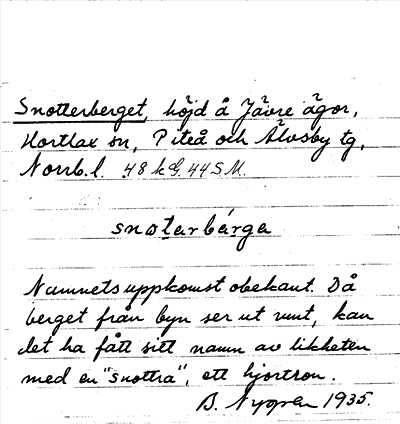 Snotterberget, höjd å Jävre ägor,
Hortlax sn, Piteå och Älvsby tg,
Norrb. l. 48 k G. 44 S.M.
snotarbärga
Namnets uppkomst obekant. Då
berget från byn ser ut runt, kan
det ha fått sitt namn av likheten
med en "snottra", ett hjortron.
B. Nygren 1935.